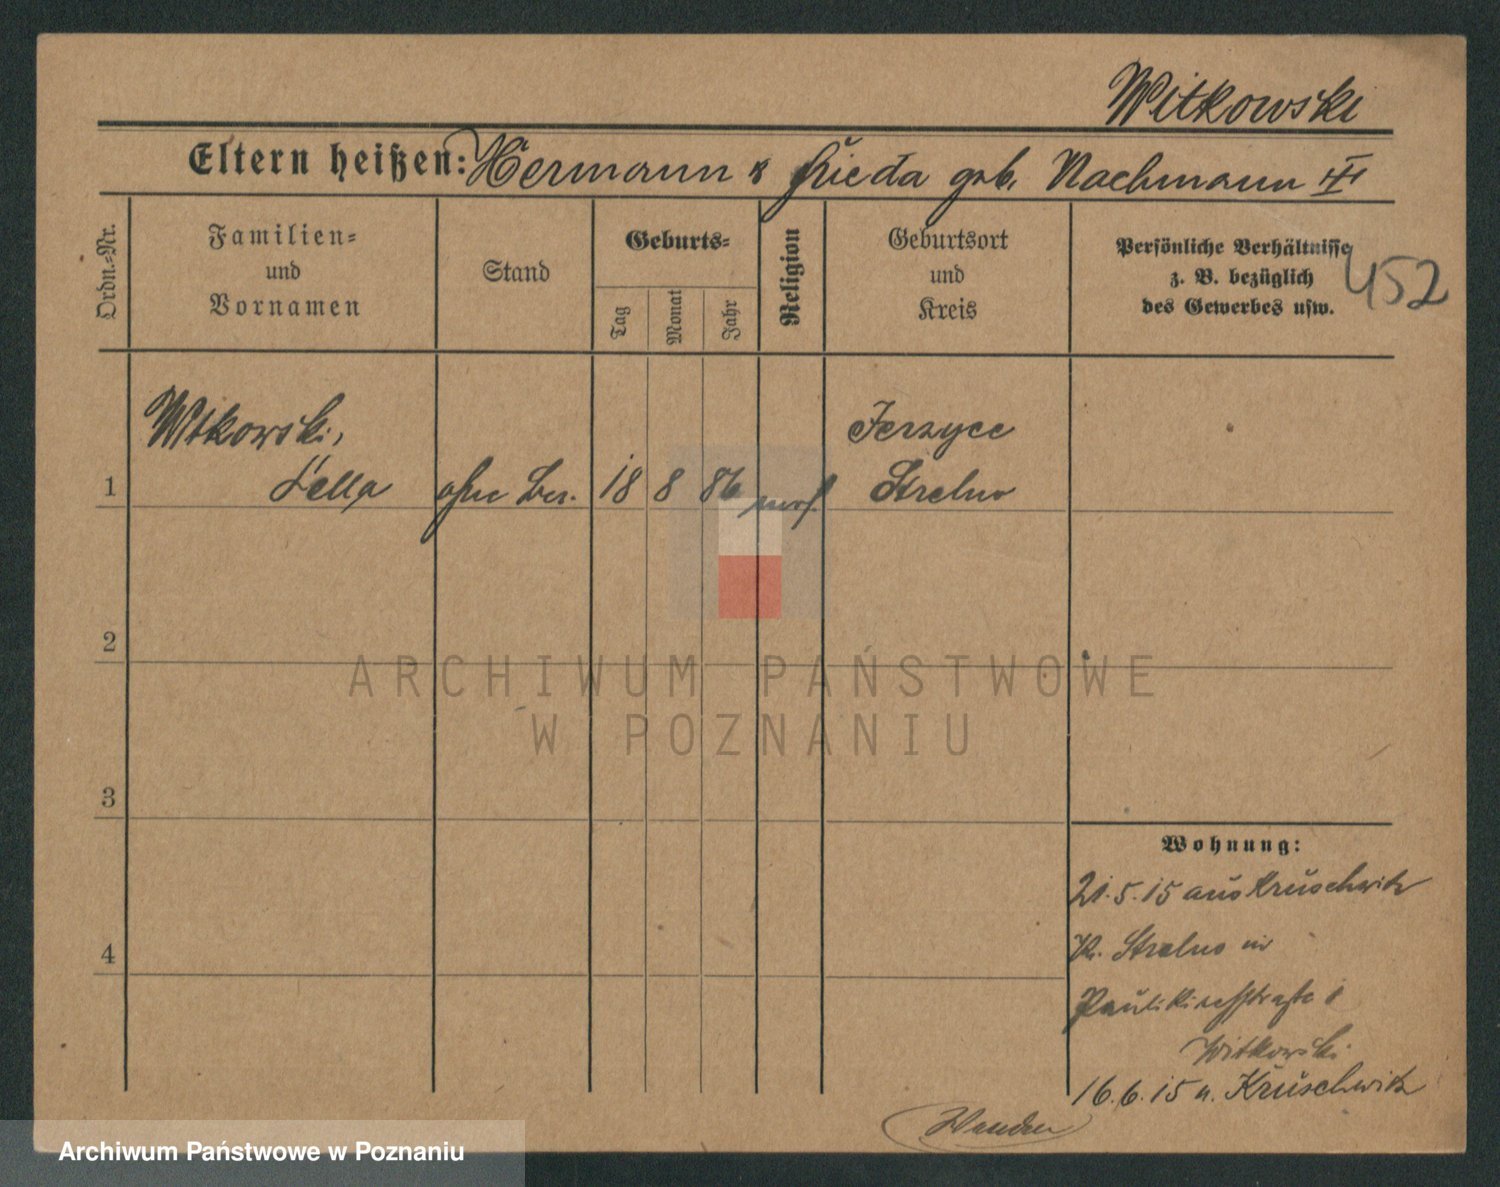 Witkowski
Eltern heißen: Hermann & Frieda geb. Nachmann III
Ordn.=Nr.
Familien=
und
Vornamen
Stand
Geburts=
Tag
Monat
Jahr
Religion
Geburtsort
und
Kreis
Persönliche Verhältnisse
z. B. bezüglich
des Gewerbes usw.
452
Witkowski,
Jerzyce
1
Della ohne Ber. 18 8 86 mos. Strelno
2
ARCHIWUM PAŃSTWOWE
W POZNANIU
3
Wohnung:
21.5.15 aus Kruschwitz
Kr. Strelno in
4
Paulikirchstraße
Witkowski
16.6.15 n. Kruschwitz
Wenden
Archiwum Państwowe w Poznaniu